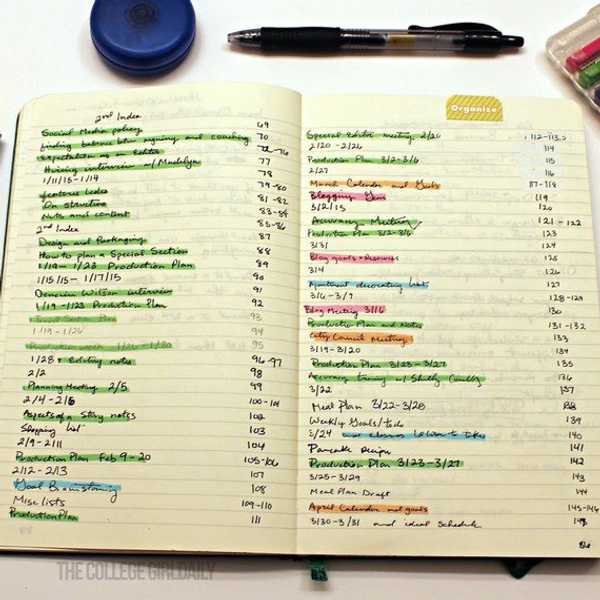 2nd Index
Social Media policy 69
finding balance btw signing and coaching 70
expectation as an editor
Hiring interview w/ Madelyn 77
1/11/15-1/14 78
features index 79-80
On structure 81-82
Nuts and content 83-84
2nd Index 85-86
Design and Packaging 87
How to plan a Special Section 88
1/19-1/23 Production Plan 89
1/15/15-1/17/15 90
Wilson interview 91
1/19-1/23 Production Plan 92
93
1/19-1/26 94
95
1/28 & Editing notes 96-97
2/2 98
Planning Meeting 2/5 99
2/4-2/6 100-101
Aspects of a Story notes 102
Shopping list 103
2/9-2/11 104
Production Plan Feb 9-20 105-106
2/12-2/13 107
Goal Brainstorming 108
Misc lists 109-110
Production Plan 111
Organize
Special Editor meeting 2/20 112-113.2
2/20-2/26 114
Production Plan 3/2-3/6 115
2/27 116
March Calendar and Goals 117-118
Blogging Goals 119
3/2/15 120
Accuracy Meeting 121-122
Production Plan 3/2-3/6 123
3/31 124
Blog goals & Resources 125
3/4 126
Apartment decorating list 127
3/6-3/9 128-129
Blog Meeting 3/16 130
Production Plan and Notes 131-132
City Council Meeting 133
3/19-3/20 134
Production Plan 3/23-3/27 135
Accuracy training w/ Shelly 136
3/22 137
Meal Plan 3/22-3/28 138
Weekly Goals/todo 139
3/24 140
Pancake Recipe 141
Production Plan 3/23-3/27 142
3/25-3/29 143
Meal Plan Draft 144
April Calendar and goals 145-146
3/30-3/31 and ideal schedule
THE COLLEGE GIRLDAILY